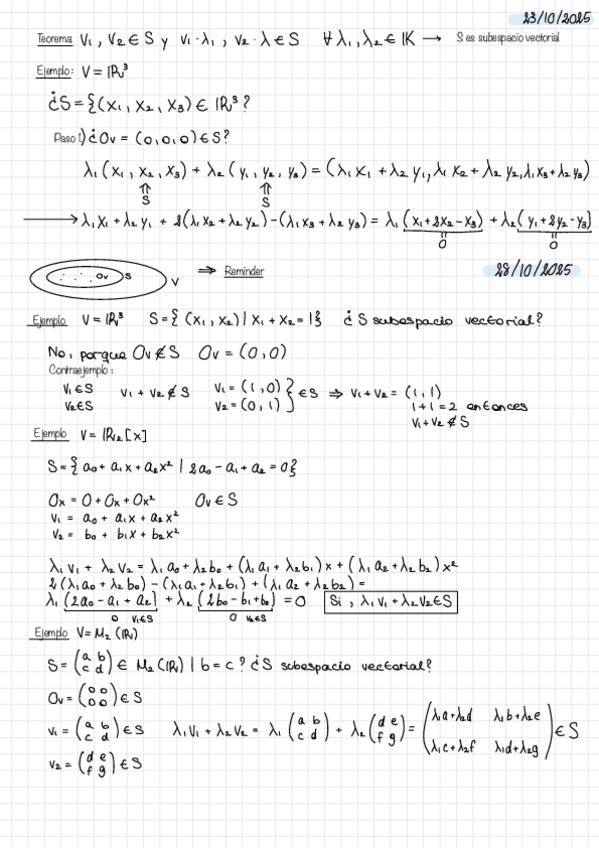 23/10/2025
Teorema: V₁, V₂ ∈ S y V₁·λ₁, V₂·λ ∈ S ∀ λ₁, λ₂ ∈ IK → S es subespacio vectorial
Ejemplo: V = IR³
¿S = {(x₁, x₂, x₃) ∈ IR³?
Paso 1) ¿Ov = (0,0,0) ∈ S?
λ₁(x₁, x₂, x₃) + λ₂(y₁, y₂, y₃) = (λ₁x₁ + λ₂y₁, λ₁x₂ + λ₂y₂, λ₁x₃ + λ₂y₃)
⇑ ⇑
S S
→ λ₁x₁ + λ₂y₁ + 2(λ₁x₂ + λ₂y₂) − (λ₁x₃ + λ₂y₃) = λ₁(x₁ + 2x₂ − x₃) + λ₂(y₁ + 2y₂ − y₃)
= =
0 0
Ov S V ⇒ Reminder 28/10/2025
Ejemplo V = IR³ S = {(x₁, x₂) | x₁ + x₂ = 1} ¿S subespacio vectorial?
No, porque Ov ∉ S Ov = (0,0)
Contraejemplo:
V₁ ∈ S V₁ + V₂ ∉ S V₁ = (1,0) } ∈ S ⇒ V₁ + V₂ = (1,1)
V₂ ∈ S V₂ = (0,1) 1+1=2 entonces
V₁ + V₂ ∉ S
Ejemplo V = IR₂[x]
S = {a₀ + a₁x + a₂x² | 2a₀ − a₁ + a₂ = 0}
Ox = 0 + 0x + 0x² Ov ∈ S
V₁ = a₀ + a₁x + a₂x²
V₂ = b₀ + b₁x + b₂x²
λ₁V₁ + λ₂V₂ = λ₁a₀ + λ₂b₀ + (λ₁a₁ + λ₂b₁)x + (λ₁a₂ + λ₂b₂)x²
2(λ₁a₀ + λ₂b₀) − (λ₁a₁ + λ₂b₁) + (λ₁a₂ + λ₂b₂) =
λ₁(2a₀ − a₁ + a₂] + λ₂(2b₀ − b₁ + b₀) = 0 Si, λ₁V₁ + λ₂V₂ ∈ S
0 V₁∈S 0 V₂∈S
Ejemplo V = M₂(IR)
S = (a b / c d) ∈ M₂(IR) | b = c? ¿S subespacio vectorial?
Ov = (0 0 / 0 0) ∈ S
V₁ = (a b / c d) ∈ S λ₁V₁ + λ₂V₂ = λ₁(a b / c d) + λ₂(d e / f g) = (λa+λ₂d λ₁b+λ₂e / λ₁c+λ₂f λ₁d+λ₂g) ∈ S
V₂ = (d e / f g) ∈ S